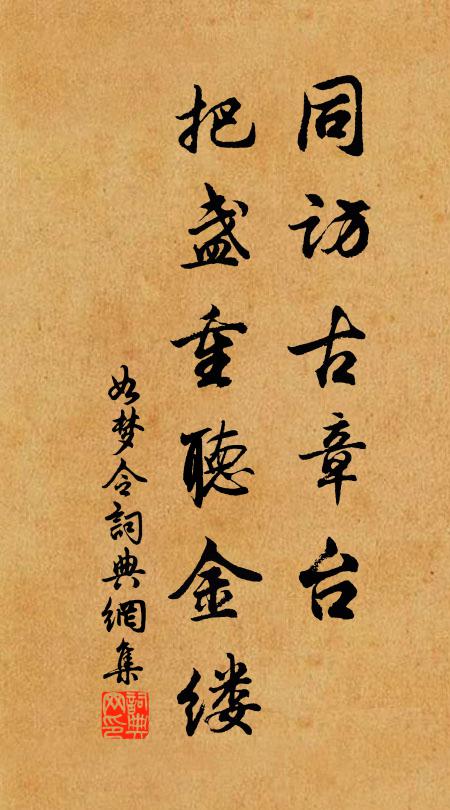 同访古章台
把盏重聽金缕
如梦令詞典網集
詞典
网印